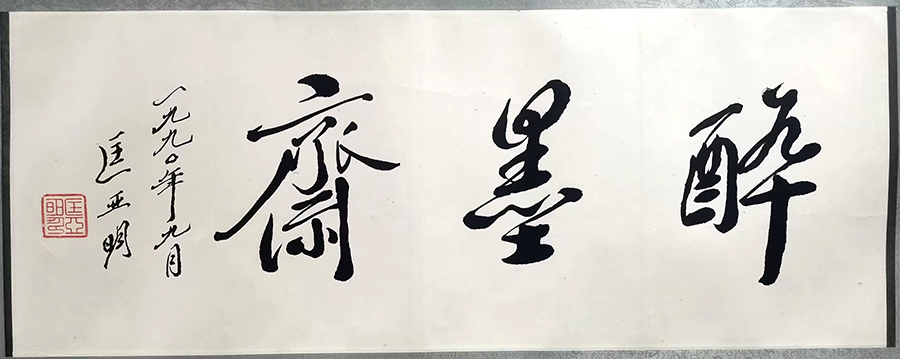 醉墨齋
一九九〇年九月
匡亚明
匡亞明印